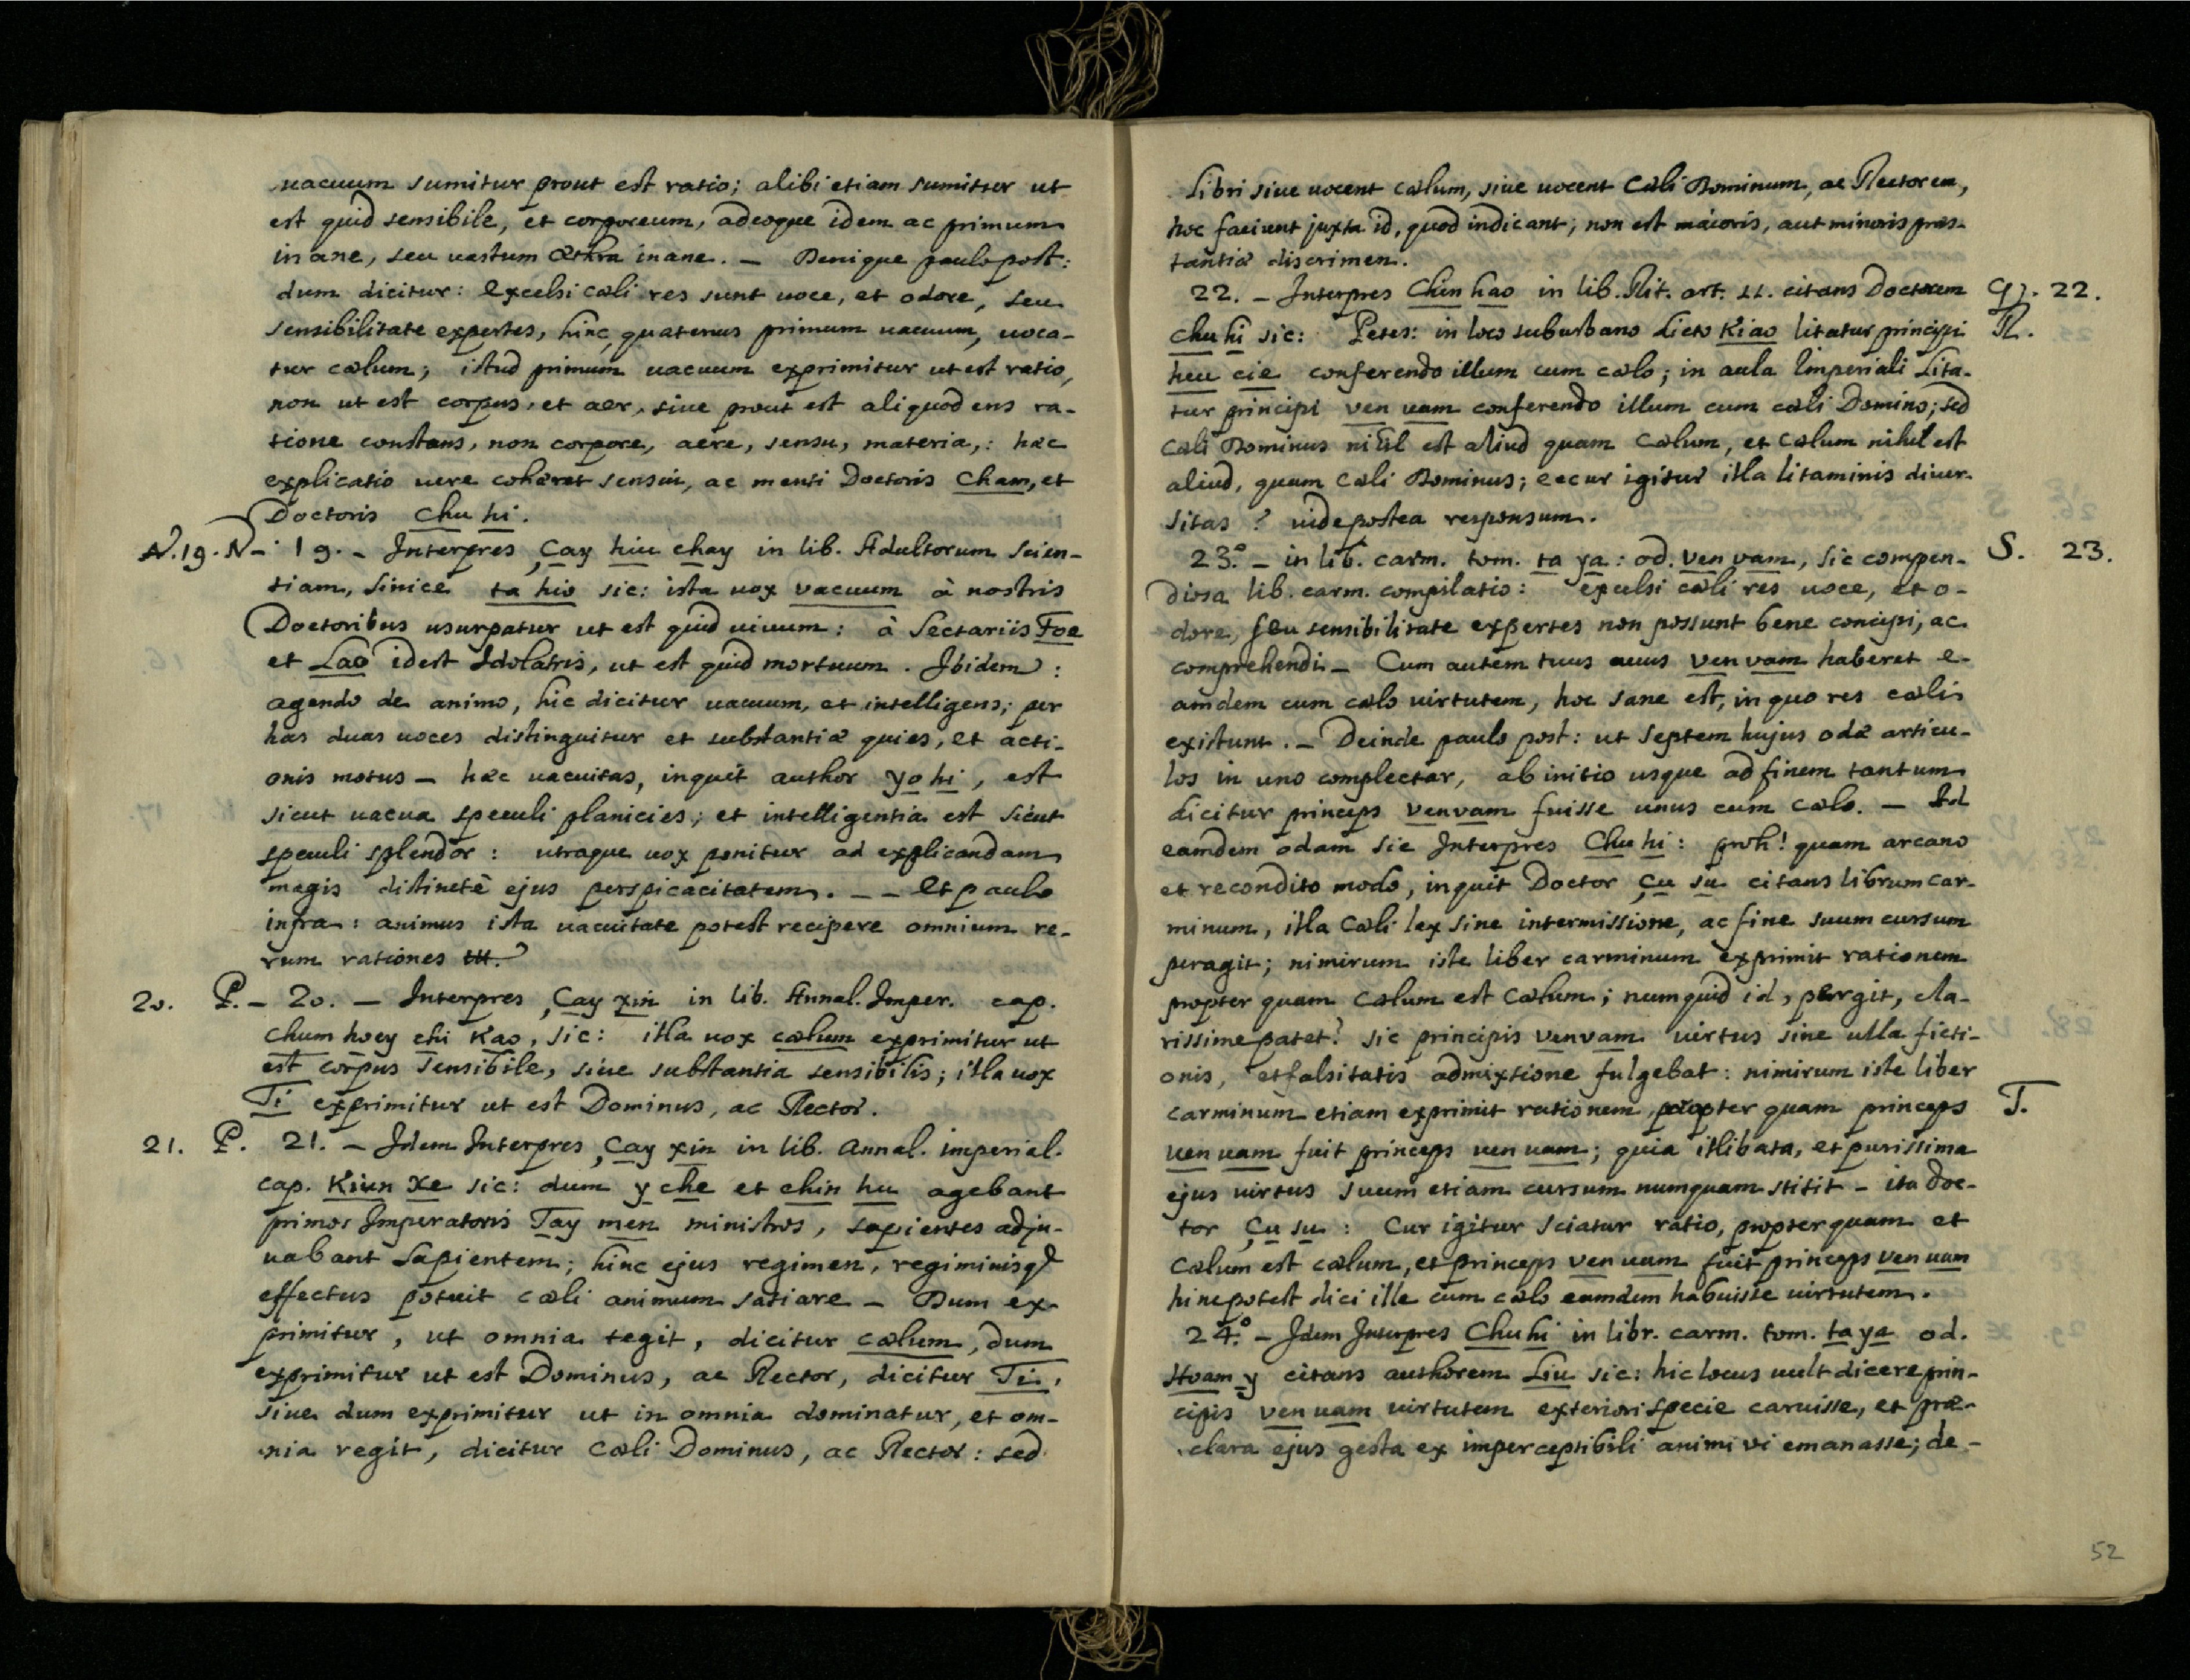 vacuum sumitur prout est ratio; alibi etiam sumitur ut
est quid sensibile, et corporeum, adeoque idem ac primum
inane, seu vastum æthra inane. – Denique paulo post:
dum dicitur: excelsi cæli res sunt voce, et odore, seu
sensibilitate expertes, hinc, quatenus primum vacuum, voca-
tur cælum; istud primum vacuum exprimitur ut est ratio,
non ut est corpus, et aer, sive prout est aliquod ens ra-
tione constans, non corpore, aere, sensu, materia,: hæc
explicatio vere cohæret sensui, ac menti Doctoris Cham, et
Doctoris Chu hi.
N. 19. N – 19. – Interpres Çay hiu chay in lib. Adultorum scien-
tiam, sinicè ta hio sic: ista vox vacuum à nostris
Doctoribus usurpatur ut est quid vivum: à Sectariis Foe
et Lao idest Idolatris, ut est quid mortuum. Ibidem:
agendo de animo, hic dicitur vacuum, et intelligens; per
has duas voces distinguitur et substantiæ quies, et acti-
onis motus – hæc vacuitas, inquit author yo hi, est
sicut vacua speculi planicies; et intelligentia est sicut
speculi splendor: utraque vox ponitur ad explicandam
magis distinctè ejus perspicacitatem. – – Et paulo
infra: animus ista vacuitate potest recipere omnium re-
rum rationes
20. P. – 20. – Interpres Çay xin in lib. Annal. Imper. cap.
Chum hoey chi Kao, sic: illa vox cælum exprimitur ut
est corpus sensibile, sive substantia sensibilis; illa vox
Ti exprimitur ut est Dominus, ac Rector.
21. P. 21. – Idem Interpres Çay xin in lib. annal. imperial.
cap. Kiun Xe sic: dum y che et chin hu agebant
primos Imperatoris Tay men ministros, sapientes adju-
vabant Sapientem; hinc ejus regimen, regiminisq
effectus potuit cæli animum satiare – Dum ex-
primitur, ut omnia tegit, dicitur cælum, dum
exprimitur ut est Dominus, ac Rector, dicitur Ti,
sive dum exprimitur ut in omnia dominatur, et om-
nia regit, dicitur Cæli Dominus, ac Rector: sed
Libri sive vocent cælum, sive vocent Cæli Dominum, ac Rectorem,
hoc faciunt juxta id, quod indicant; non est maioris, aut minoris præs-
tantiæ discrimen.
22. – Interpres Chin hao in lib. Rit. art. 11. citans Doctorem Q. 22.
Chu hi sic: Petes: in loco suburbano dicto Kiao litatur principi R.
heu cie conferendo illum cum cælo; in aula Imperiali Lita-
tur principi ven vam conferendo illum cum cæli Domino; sed
Cæli Dominus nihil est aliud quam Cælum, et Cælum nihil est
aliud, quam Cæli Dominus; eccur igitur illa litaminis diver-
sitas? vide postea responsum.
23.° – in lib. carm. tom. ta ya: od. ven vam, sic compen- S. 23.
diosa lib. carm. compilatio: excelsi cæli res voce, et o-
dore, seu sensibilitate expertes non possunt bene concipi, ac
comprehendi – Cum autem tuus avus ven vam haberet e-
amdem cum cælo virtutem, hoc sane est, in quo res cælis
existunt. – Deinde paulo post: ut septem hujus odæ articu-
los in uno complectar, ab initio usque ad finem tantum
dicitur princeps venvam fuisse unus cum cælo. – Ad
eamdem odam sic Interpres Chu hi: proh! quam arcano
et recondito modo, inquit Doctor Çu su citans librum car-
minum, illa Cæli lex sine intermissione, ac fine suum cursum
peragit; nimirum iste liber carminum exprimit rationem
propter quam Cælum est Cælum; numquid id, pergit, cla-
rissime patet? sic principis venvam virtus sine ulla ficti-
onis, et falsitatis admixtione fulgebat: nimirum iste liber
carminum etiam exprimit rationem, propter quam princeps T.
ven vam fuit princeps ven vam; quia illibata, et purissima
ejus virtus suum etiam cursum numquam stitit – ita Doc-
tor Çu su: Cur igitur sciatur ratio, propter quam et
Cælum est cælum, et princeps ven vam fuit princeps ven vam
hinc potest dici ille cum cælo eamdem habuisse virtutem.
24.° – Idem Interpres Chu hi in libr. carm. tom. ta ya od.
Hoam y citans authorem Liu sic: hic locus vult dicere prin-
cipis ven vam virtutem exteriori specie caruisse, et præ-
clara ejus gesta ex imperceptibili animi vi emanasse; de-
52